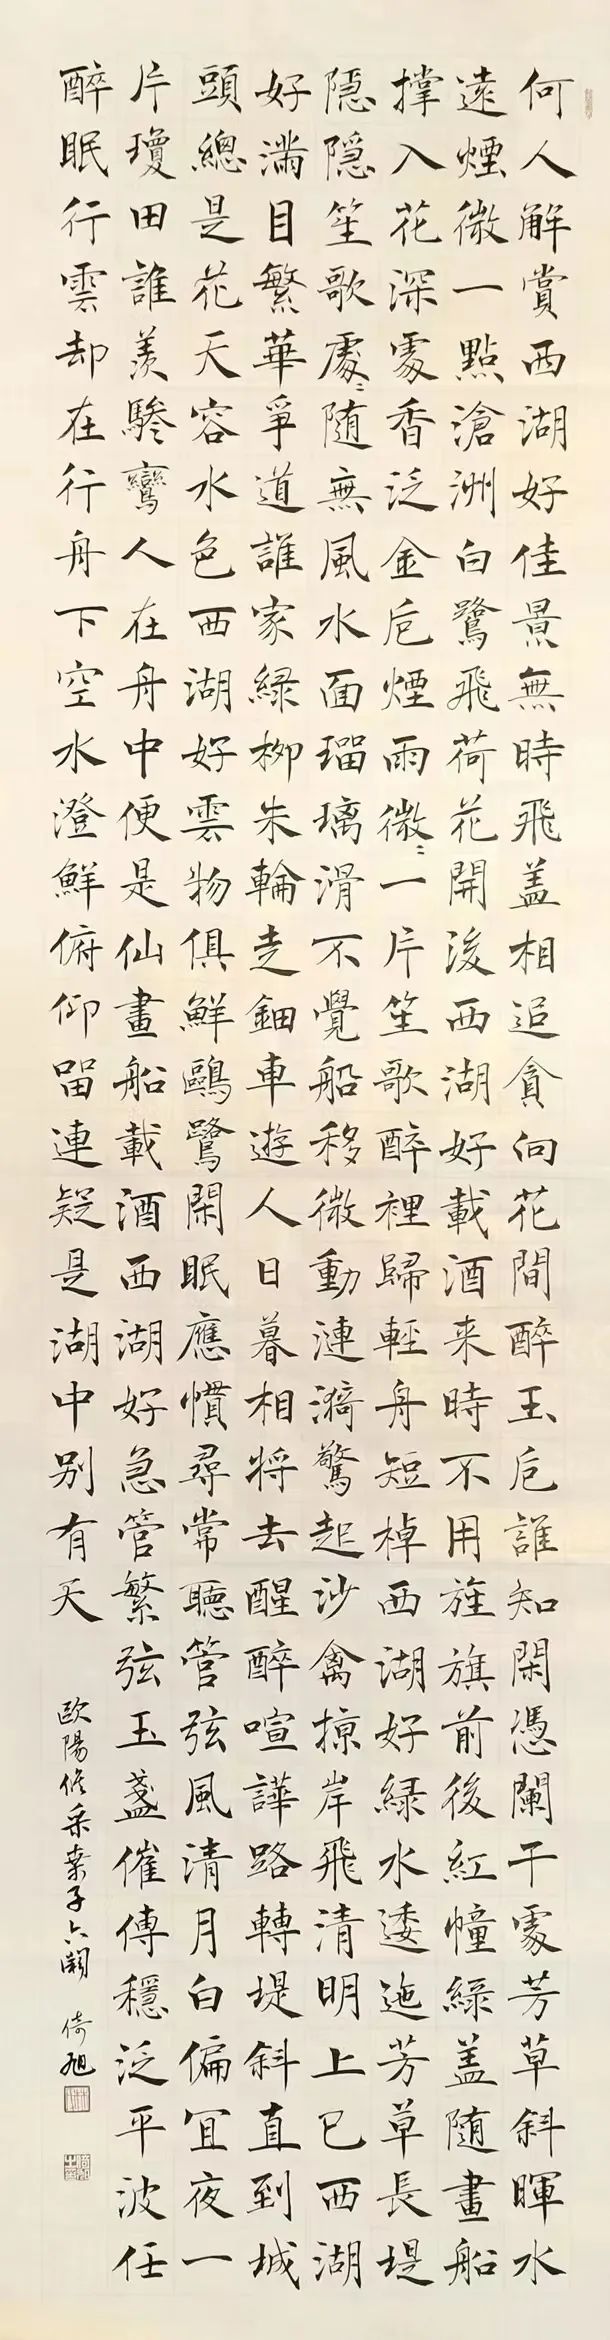 何人解賞西湖好佳景無時飛盖相追貪向花間醉玉卮誰知閑憑闌干處芳草斜暉水
遠煙微一點滄洲白鷺飛荷花開後西湖好載酒来時不用旌旗前後紅幢緑盖随畫船
撑入花深處香泛金卮煙雨微〻一片笙歌醉裡歸輕舟短棹西湖好緑水逶迤芳草長堤
隱隱笙歌處〻随無風水面瑠璃滑不覺船移微動漣漪驚起沙禽掠岸飛清明上巳西湖
好滿目繁華爭道誰家緑柳朱輪走鈿車遊人日暮相将去醒醉喧譁路轉堤斜直到城
頭總是花天容水色西湖好雲物俱鮮鷗鷺閑眠應慣尋常聽管弦風清月白偏宜夜一
片瓊田誰羨驂鸞人在舟中便是仙畫船載酒西湖好急管繁弦玉盞催傳穩泛平波任
醉眠行雲却在行舟下空水澄鮮俯仰留連疑是湖中别有天
歐陽修采桑子六闋 倚旭